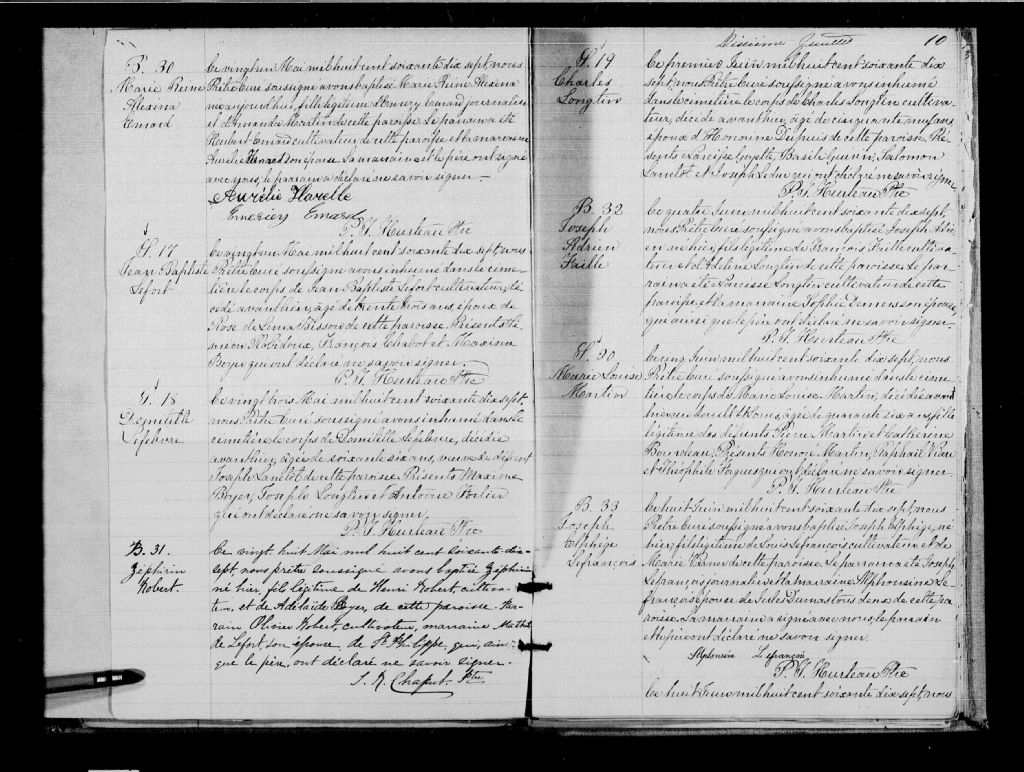 B. 30
Marie Reine
Alexina
Emard
Ce vingt un Mai mil huit cent soixante dix sept, nous
Prêtre Curé soussigné avons baptisé Marie Reine Alexina
née aujourd'hui, fille légitime d'Emery Emard journalier
et d'Amanda Martin de cette paroisse. Le parrain a été
Hubert Emard cultivateur de cette paroisse et la marraine
Aurélie son épouse. La marraine et le père ont signé
avec nous, le parrain a déclaré ne savoir signer.
Aurélie
Emard
P. J. Hurteau Ptre
S. 17
Jean Baptiste
Lefort
Ce vingt un Mai mil huit cent soixante dix sept, nous
Prêtre Curé soussigné avons inhumé dans le cime-
tière le corps de Jean Baptiste Lefort cultivateur, dé-
cédé avant hier, âgé de trente trois ans, époux de
Rose de Lima Bisson de cette paroisse. Présents
Robidoux, François Chabot et Maxime
Boyer qui ont déclaré ne savoir signer.
P. J. Hurteau Ptre
S. 18
Domitille
Lefebvre
Ce vingt trois Mai mil huit cent soixante dix sept,
nous Prêtre Curé soussigné avons inhumé dans le
cimetière le corps de Domitille Lefebvre, décédée
avant hier, âgée de soixante six ans, veuve de défunt
Joseph Lanctôt de cette paroisse. Présents Maxime
Boyer, Joseph Longtin et Antoine Fortier
qui ont déclaré ne savoir signer.
P. J. Hurteau Ptre
B. 31.
Zéphirin
Robert.
Ce vingt huit Mai mil huit cent soixante dix-
sept, nous prêtre soussigné avons baptisé Zéphirin
né hier, fils légitime de Henri Robert, cultiva-
teur, et de Adélaïde Boyer, de cette paroisse. Par-
rain Olivier Robert, cultivateur, marraine
de Lefort, son épouse, de St Philippe, qui, ain-
que le père, ont déclaré ne savoir signer.
Chaput Ptre
Dixième feuillet
10
S. 19
Charles
Longtin
Ce premier Juin mil huit cent soixante dix
sept, nous Prêtre Curé soussigné avons inhumé
dans le cimetière le corps de Charles Longtin cultiva-
teur, décédé avant hier, âgé de cinquante neuf ans
époux d'Honorine Dupuis de cette paroisse. Pré-
sents Narcisse Goyette, Basile Guérin, Salomon
Lanctôt et Joseph Leduc qui ont déclaré ne savoir signer.
P. J. Hurteau Ptre
B. 32
Joseph
Adrien
Faille
Ce quatre Juin mil huit cent soixante dix sept,
nous Prêtre Curé soussigné avons baptisé Joseph Adri-
en né hier, fils légitime de François Faille cultiva-
teur et d'Adeline Longtin de cette paroisse. Le par-
rain a été Narcisse Longtin cultivateur de cette
paroisse et la marraine Sophie Demers son épouse,
qui ainsi que le père ont déclaré ne savoir signer.
P. J. Hurteau Ptre
S. 20
Marie Louise
Martin
Ce cinq Juin mil huit cent soixante dix sept, nous
Prêtre Curé soussigné avons inhumé dans le cime-
tière le corps de Marie Louise Martin, décédée avant
hier âgée de quarante six ans, fille
légitime des défunts Pierre Martin et Catherine
Bourdeau. Présents Honoré Martin, Raphaël
et Théophile Forgues qui ont déclaré ne savoir signer.
P. J. Hurteau Ptre
B. 33
Joseph
Elphège
Lefrançois
Ce huit Juin mil huit cent soixante dix sept, nous
Prêtre Curé soussigné avons baptisé Joseph Elphège, né
hier, fils légitime de Louis Lefrançois cultivateur et de
Marie de cette paroisse. Le parrain a été Joseph
Lefrançois journalier et la marraine Alphonsine Le-
françois épouse de Jules Dumas tous deux de cette pa-
roisse. La marraine a signé avec nous, le parrain
et le père ont déclaré ne savoir signer.
Alphonsine Lefrançois
P. J. Hurteau Ptre
Ce huit Juin mil huit cent soixante dix sept, nous